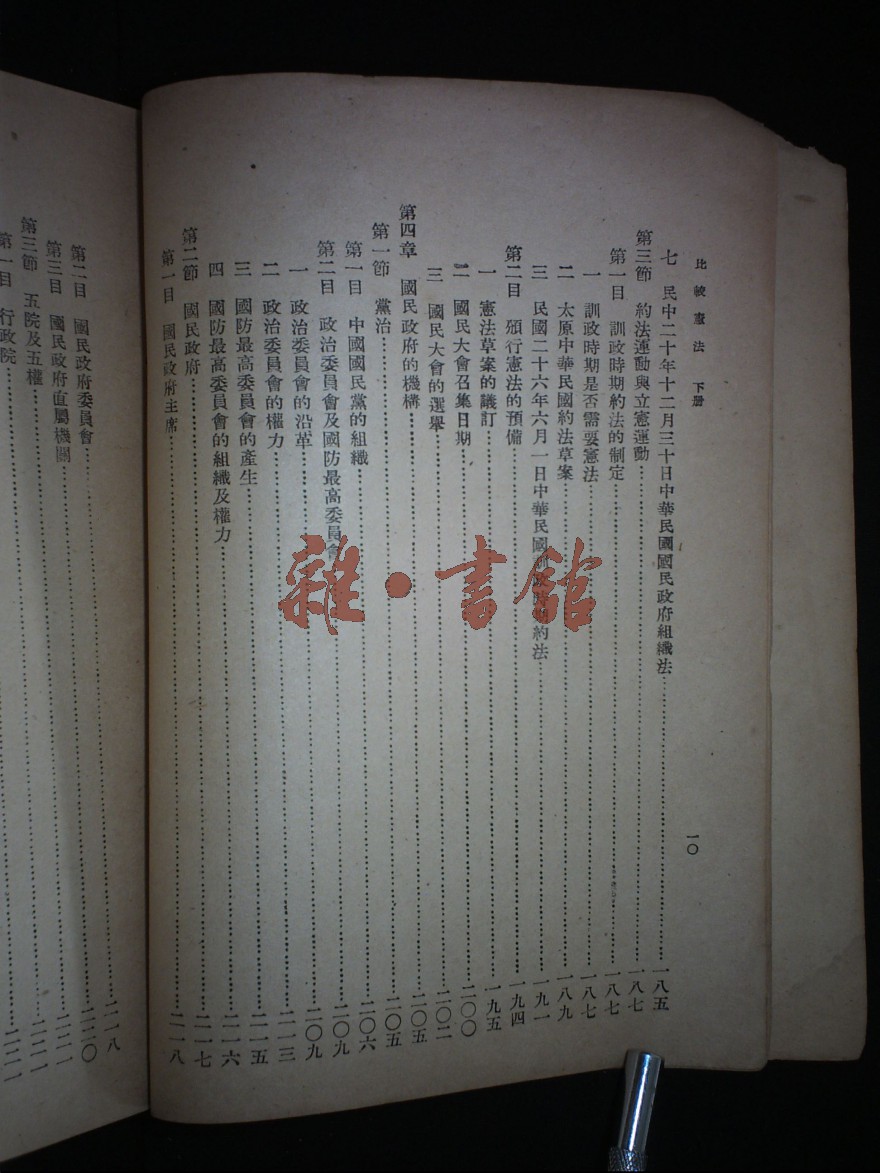 比較憲法 下冊
一〇
七 民中二十年十二月三十日中華民國國民政府組織法……一八五
第三節 約法運動與立憲運動……一八七
第一目 訓政時期約法的制定……一八七
一 訓政時期是否需要憲法……一八七
二 太原中華民國約法草案……一八九
三 民國二十六年六月一日中華民國訓政時期約法……一九一
第二目 頒行憲法的預備……一九四
一 憲法草案的議訂……一九五
二 國民大會召集日期……二〇〇
三 國民大會的選舉……二〇二
第四章 國民政府的機構……二〇五
第一節 黨治……二〇五
第一目 中國國民黨的組織……二〇六
第二目 政治委員會及國防最高委員會……二〇九
一 政治委員會的沿革……二〇九
二 政治委員會的權力……二一三
三 國防最高委員會的產生……二一五
四 國防最高委員會的組織及權力……二一六
第二節 國民政府……二一七
第一目 國民政府主席……二一八
第二目 國民政府委員會……二一八
第三目 國民政府直屬機關……二二〇
第三節 五院及五權……二二一
第一目 行政院……二二一
雜·書館